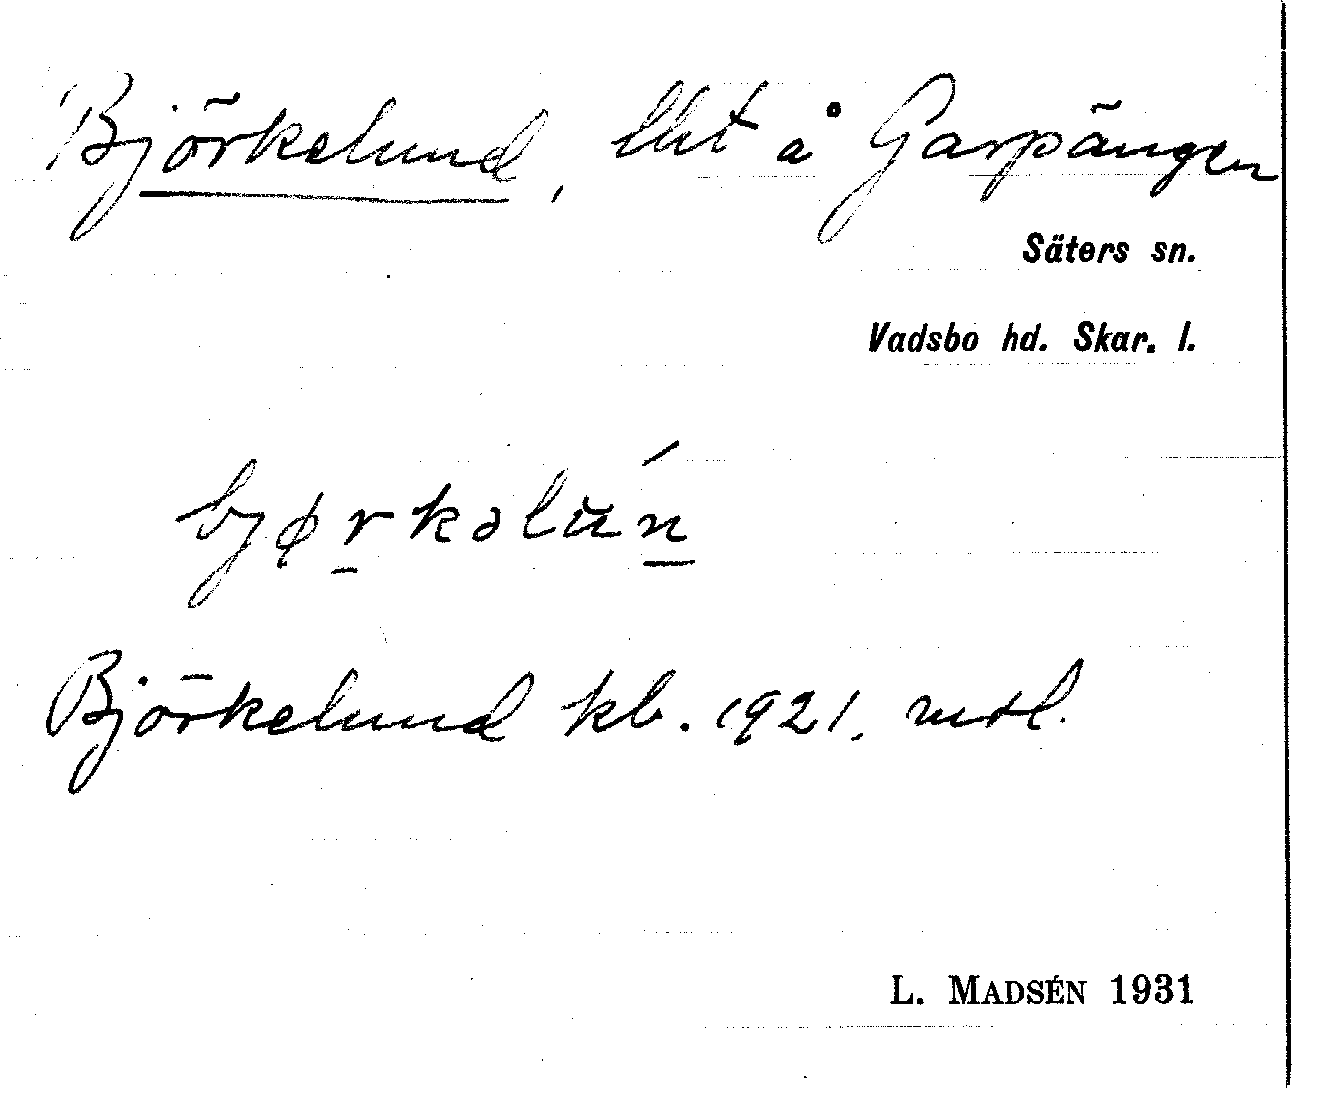 Björkelund, lht å Garpängen
Säters sn.
Vadsbo hd. Skar. l.
bjørkəlún
Björkelund kb. 1921. mtl.
L. MADSÉN 1931